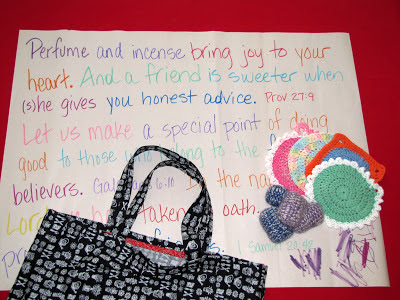 Perfume and incense bring joy to your
heart. And a friend is sweeter when
(s)he gives you honest advice. Prov 27:9
Let us make a special point of doing
good to those who belong to the
believers. 6:10 In the na
Lor taken oath.
pr
1 Samuel 20:42